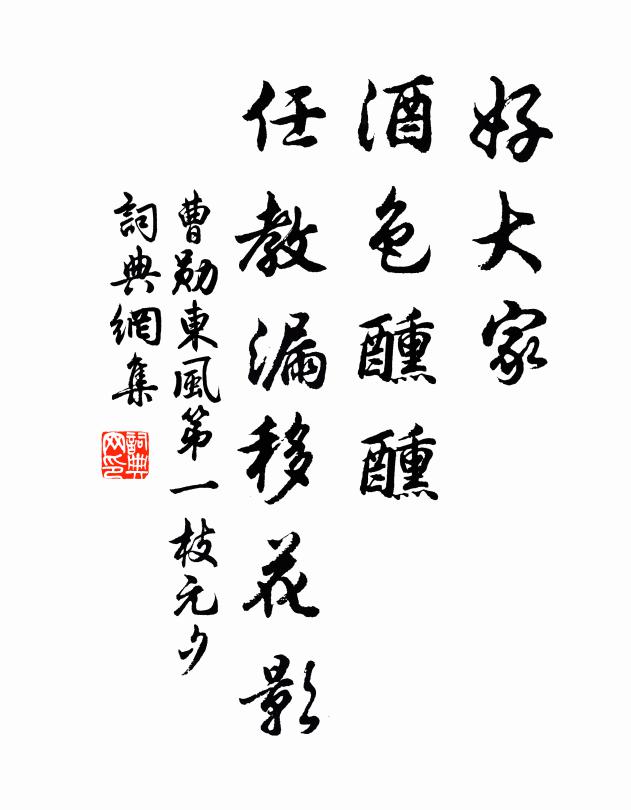 好大家
酒色醺醺
任教漏移花影
曹勛東風第一枝元夕
詞典網集
詞典
网印